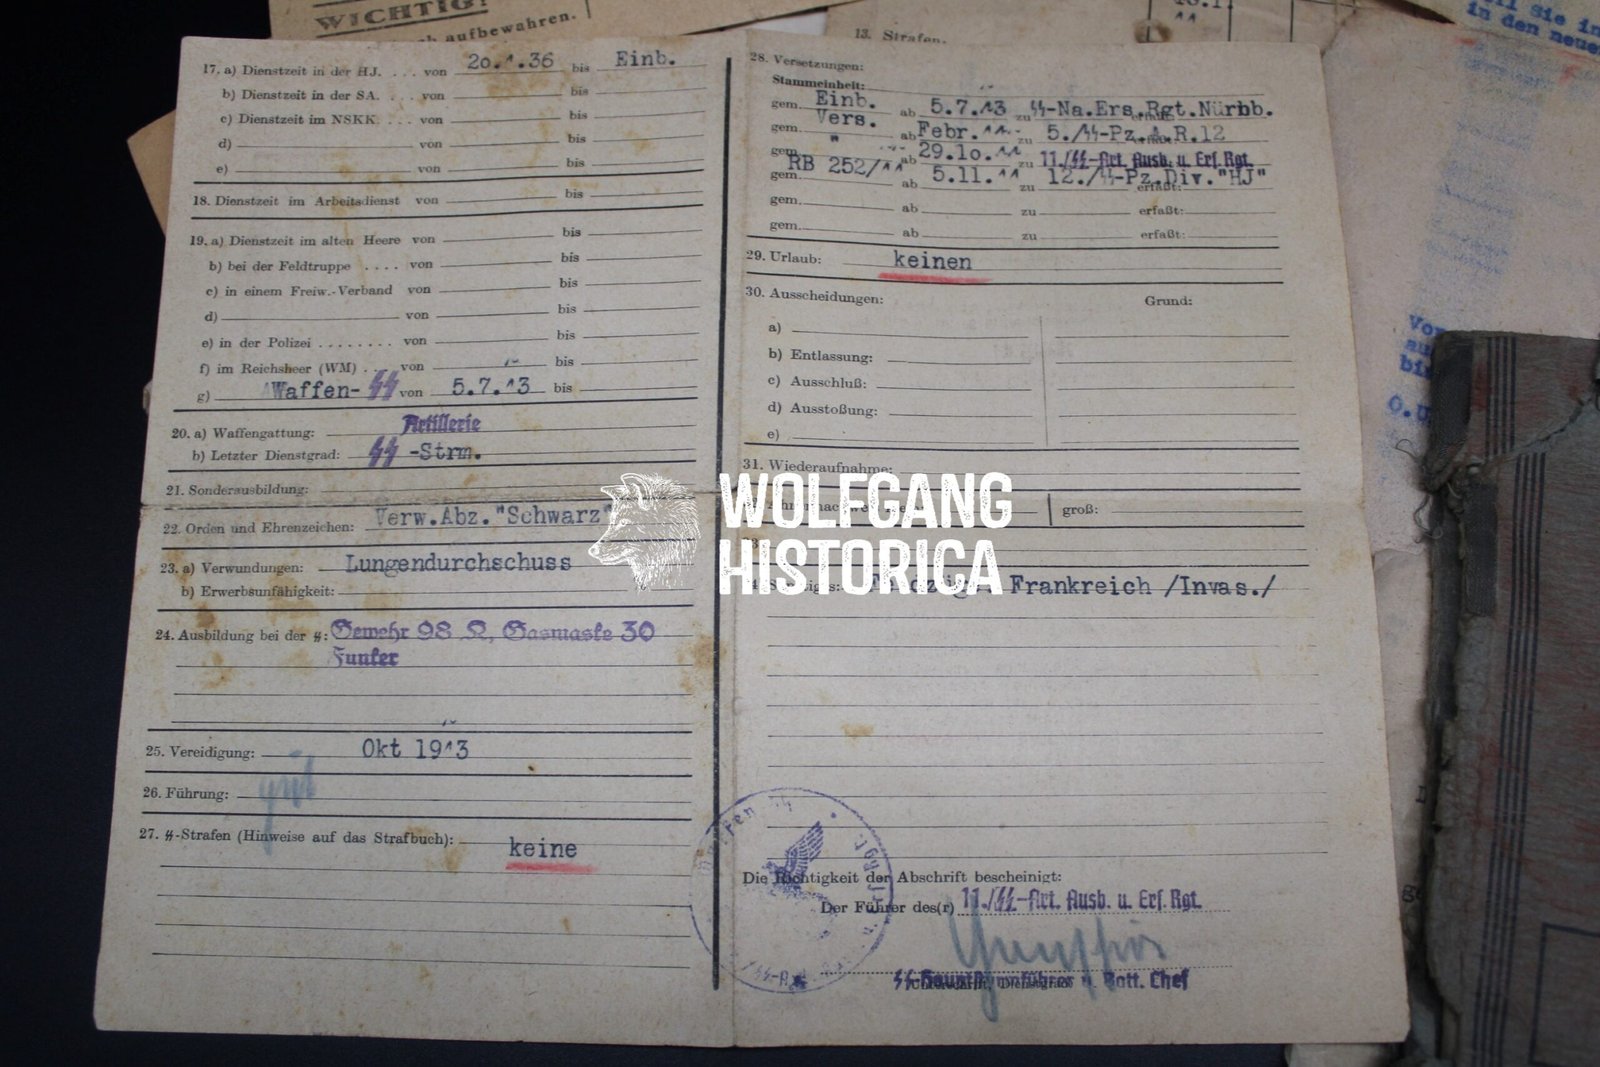 WICHTIG!
aufbewahren.
13. Strafen.
17. a) Dienstzeit in der HJ. . . . von 20.4.36 bis Einb.
b) Dienstzeit in der SA. . . . von bis
c) Dienstzeit im NSKK . . . von bis
d) von bis
e) von bis
18. Dienstzeit im Arbeitsdienst von bis
19. a) Dienstzeit im alten Heere von bis
b) bei der Feldtruppe . . . . von bis
c) in einem Freiw.-Verband von bis
d) von bis
e) in der Polizei . . . . . . . . von bis
f) im Reichsheer (WM) . . von bis
g) Waffen-ϟϟ von 5.7.43 bis
20. a) Waffengattung: Artillerie
b) Letzter Dienstgrad: ϟϟ -Strm.
21. Sonderausbildung:
22. Orden und Ehrenzeichen: Verw.Abz."Schwarz"
23. a) Verwundungen: Lungendurchschuss
b) Erwerbsunfähigkeit:
24. Ausbildung bei der ϟϟ: Gewehr 98 K, Gasmaske 30
Funker
25. Vereidigung: Okt 1943
26. Führung: gut
27. ϟϟ-Strafen (Hinweise auf das Strafbuch): keine
28. Versetzungen:
Stammeinheit:
gem. Einb. ab 5.7.43 zu ϟϟ-Na.Ers.Rgt.Nürbb.
gem. Vers. ab Febr.44 zu 5./ϟϟ-Pz.A.R.12
gem. " ab 29.10.44 zu 11./ϟϟ-Art. Ausb. u. Ers. Rgt.
gem. RB 252/44 ab 5.11.44 zu 12./ϟϟ-Pz.Div."HJ" erfaßt:
gem. ab zu erfaßt:
gem. ab zu erfaßt:
29. Urlaub: keinen
30. Ausscheidungen: Grund:
a)
b) Entlassung:
c) Ausschluß:
d) Ausstoßung:
e)
31. Wiederaufnahme:
groß:
Frankreich /Invas./
Die Richtigkeit der Abschrift bescheinigt:
Der Führer des(r) 11./ϟϟ-Art. Ausb. u. Ers. Rgt.
ϟϟ-Hauptsturmführer u. Batt. Chef
WOLFGANG
HISTORICA